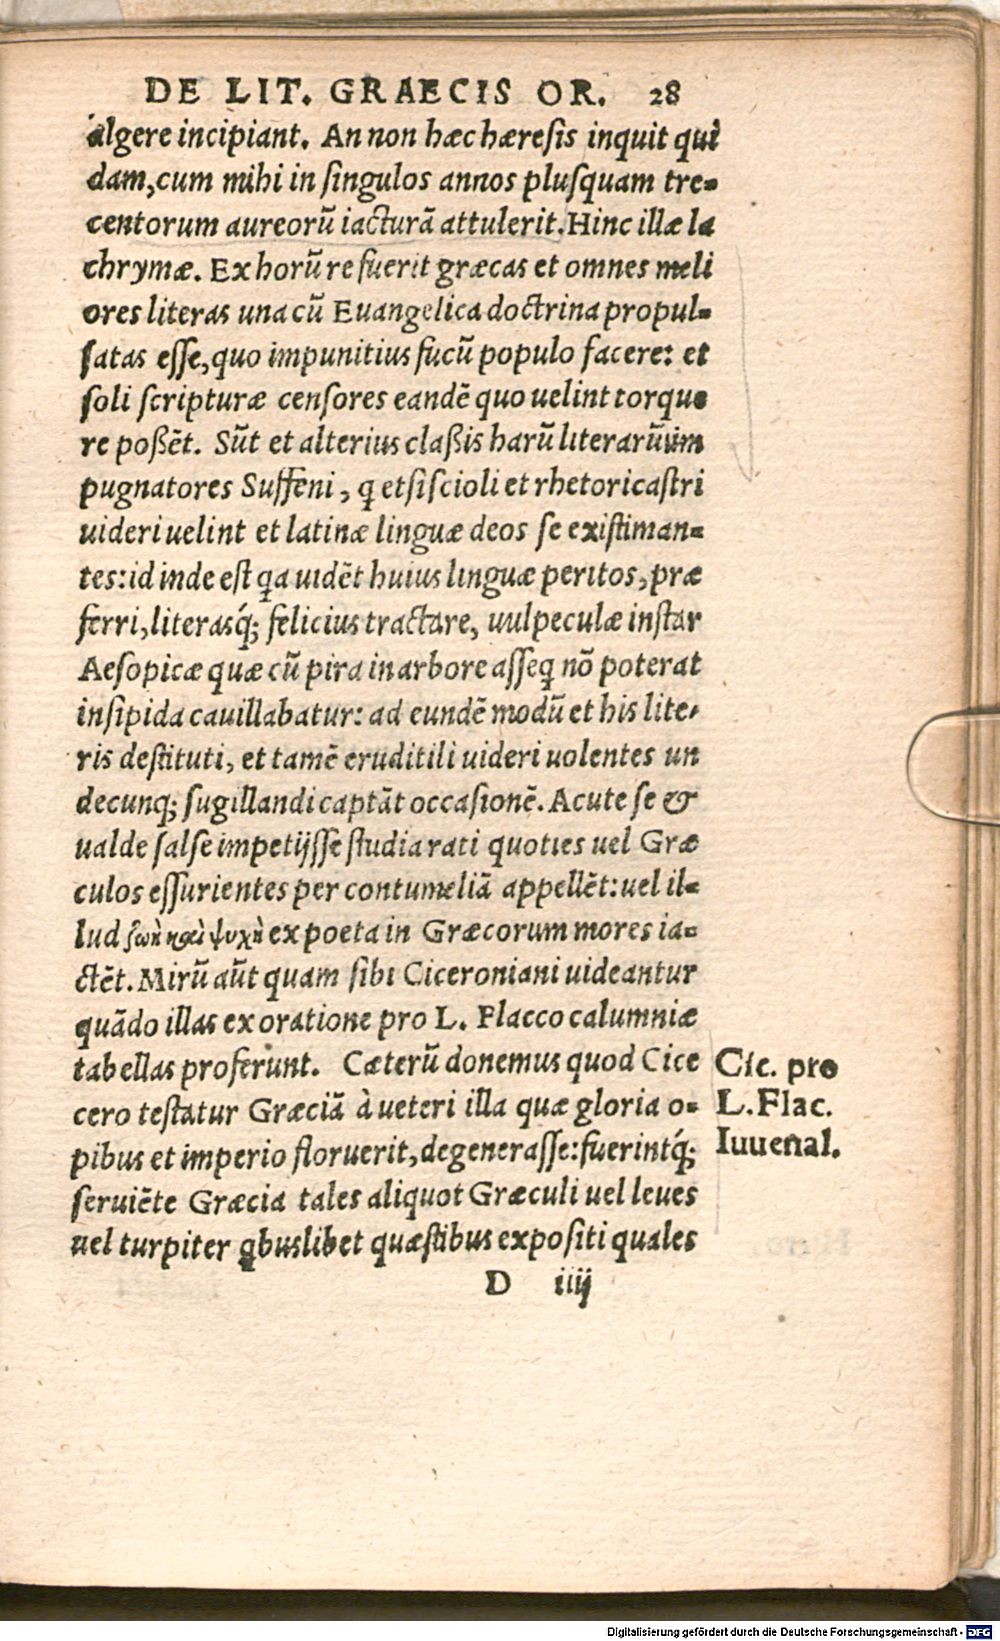 DE LIT. GRAECIS OR. 28
algere incipiant. An non hæc hæresis inquit qui
dam, cum mihi in singulos annos plusquam tre-
centorum aureorū iacturā attulerit. Hinc illæ la
chrymæ. Ex horū re fuerit græcas et omnes meli
ores literas una cū Euangelica doctrina propul-
satas esse, quo impunitius fucū populo facere: et
soli scripturæ censores eandē quo uelint torque
re poßēt. Sūt et alterius claßis harū literarū im
pugnatores Suffeni, q etsi scioli et rhetoricastri
uideri uelint et latinæ linguæ deos se existiman-
tes: id inde est qa uidēt huius linguæ peritos, præ
ferri, literasq́; felicius tractare, uulpeculæ instar
Aesopicæ quæ cū pira in arbore asseq nō poterat
insipida cauillabatur: ad eundē modū et his lite,
ris destituti, et tamē eruditili uideri uolentes un
decunq; sugillandi captāt occasionē. Acute se &
ualde salse impetijsse studia rati quoties uel Græ
culos essurientes per contumeliā appellēt: uel il-
lud ζωὴ καὶ ψυχὴ ex poeta in Græcorum mores ia-
ctēt. Mirū aūt quam sibi Ciceroniani uideantur
quādo illas ex oratione pro L. Flacco calumniæ
tabellas proferunt. Cæterū donemus quod Cice
cero testatur Græciā à ueteri illa quæ gloria o-
pibus et imperio floruerit, degenerasse: fuerintq́;
seruiēte Græcia tales aliquot Græculi uel leues
uel turpiter qbuslibet quæstibus expositi quales
D iiij
Cic. pro
L. Flac.
Iuuenal.
Digitalisierung gefördert durch die Deutsche Forschungsgemeinschaft - DFG